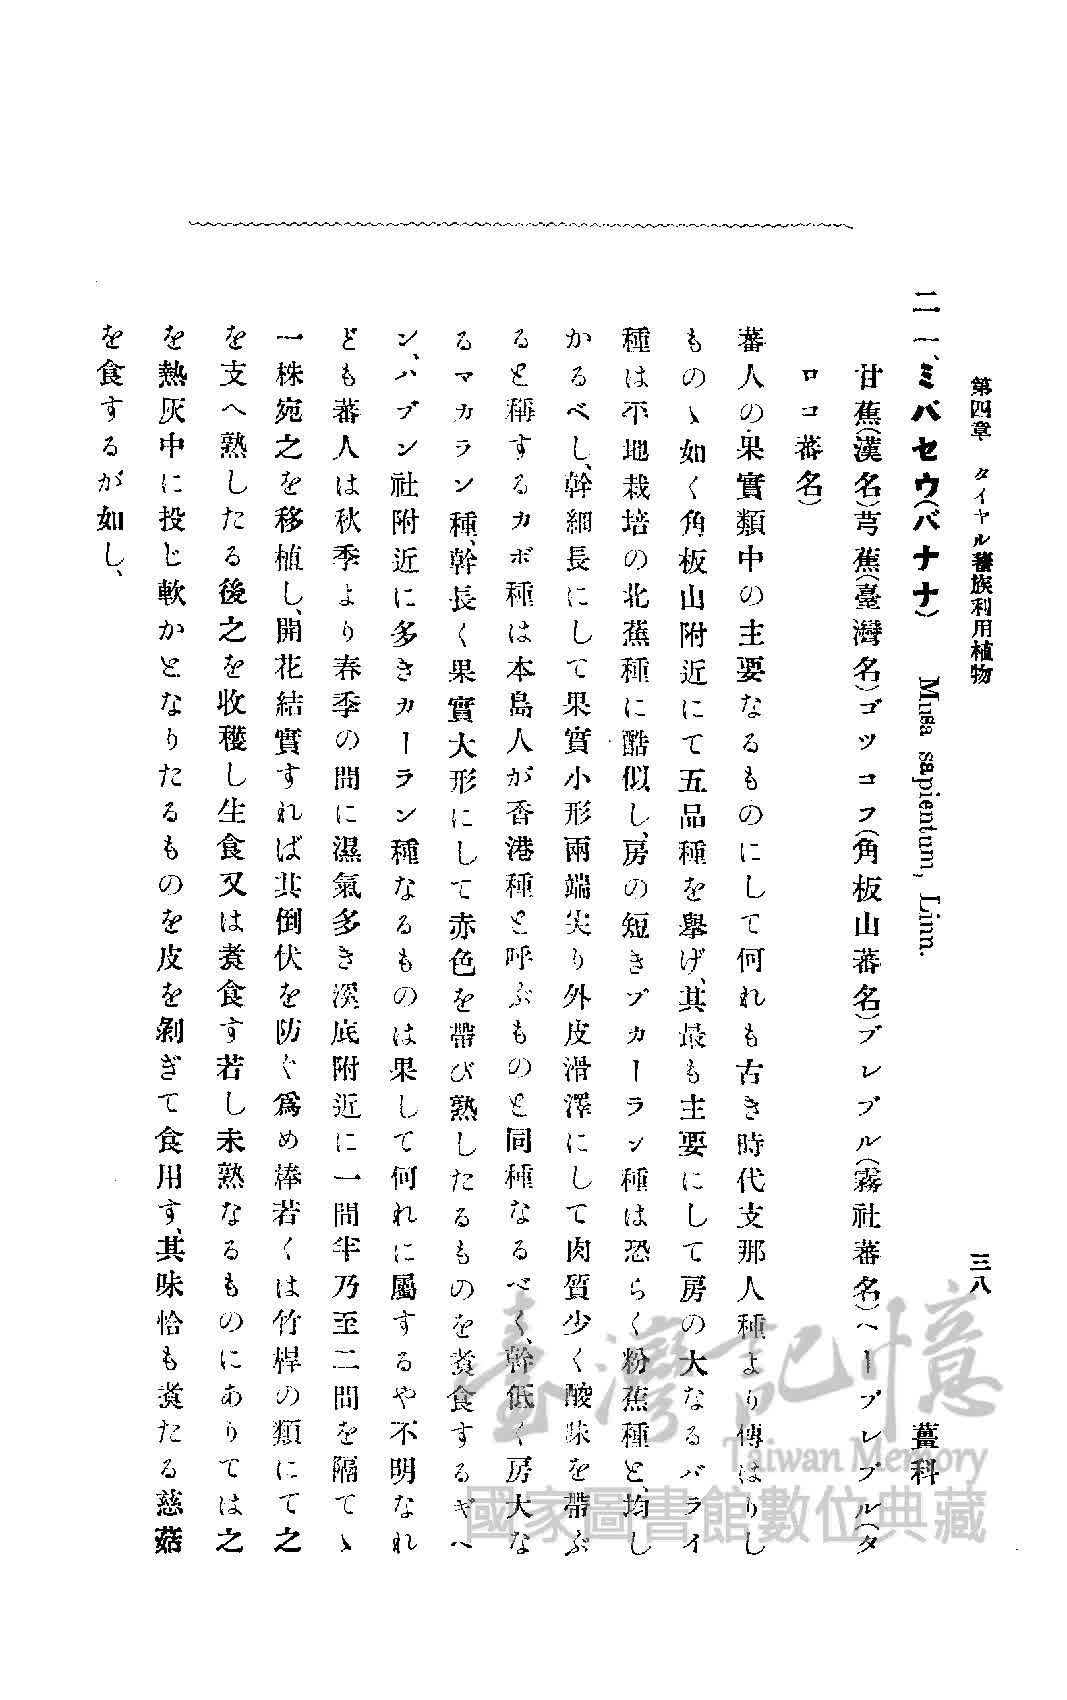 第四章　タイヤル蕃族利用植物
三八
二一、ミバセウ(バナナ)　Musa sapientum, Linn.　薑科
甘蕉(漢名)芎蕉(臺灣名)ゴツコフ(角板山蕃名)ブレブル(霧社蕃名)ヘーブレブル(タ
ロコ蕃名)
蕃人の果實類中の主要なるものにして何れも古き時代支那人種より傳はりし
ものゝ如く角板山附近にて五品種を擧げ、其最も主要にして房の大なるバライ
種は平地栽培の北蕉種に酷似し、房の短きブカーラン種は恐らく粉蕉種と、均し
かるべし、幹細長にして果實小形兩端尖り外皮滑澤にして肉質少く酸味を帶ぶ
ると稱するカボ種は本島人が香港種と呼ぶものと同種なるべく、幹低く房大な
るマカラン種、幹長く果實大形にして赤色を帶び熟したるものを煮食するギヘ
ン、ハブン社附近に多きカーラン種なるものは果して何れに屬するや不明なれ
ども蕃人は秋季より春季の間に濕氣多き溪底附近に一間半乃至二間を隔てゝ
一株宛之を移植し、開花結實すれば其倒伏を防ぐ爲め棒若くは竹桿の類にて之
を支へ熟したる後之を收穫し生食又は煮食す若し未熟なるものにありては之
を熱灰中に投じ軟かとなりたるものを皮を剝ぎて食用す、其味恰も煮たる慈菇
を食するが如し、
臺灣記憶
Taiwan Memory
國家圖書館數位典藏